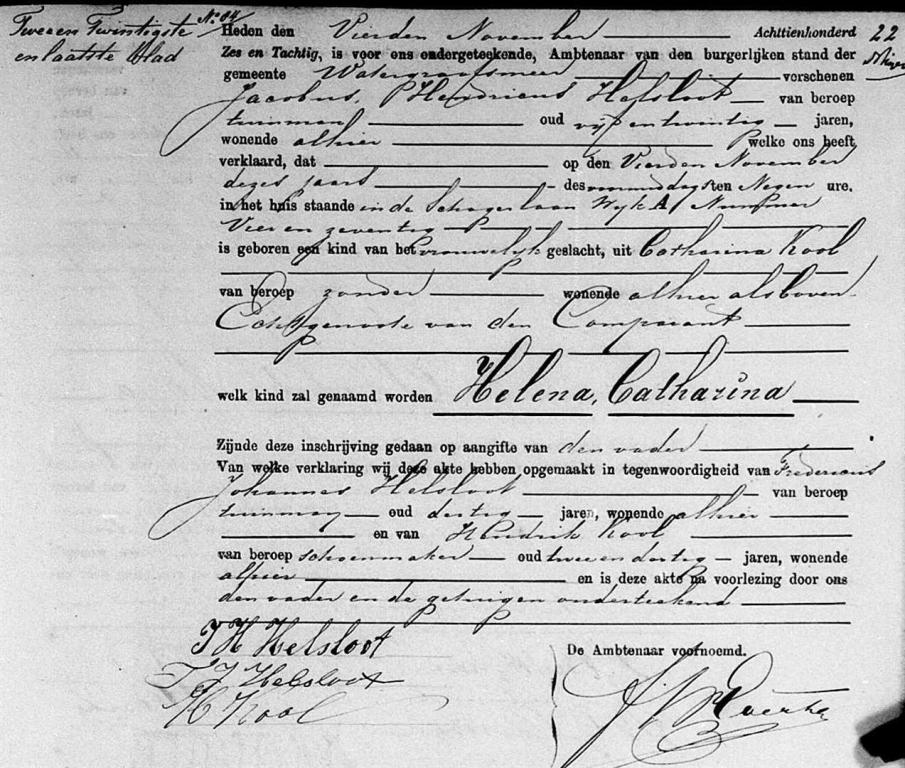 Twee en Twintigste
en laatste blad
No. 84
Heden den Vierden November Achttienhonderd
Zes en Tachtig, is voor ons ondergeteekende, Ambtenaar van den burgerlijken stand der
gemeente Watergraafsmeer verschenen
Jacobus, Hendricus Helsloot van beroep
tuinman oud vijf en twintig jaren,
wonende alhier welke ons heeft
verklaard, dat op den Vierden November
dezes jaars des voormiddags ten Negen ure.
in het huis staande in de Schagerlaan Wyk A, Nummer
Vier en zeventig
is geboren een kind van het vrouwelijk geslacht, uit Catharina Kool
van beroep zonder wonende alhier als boven
Echtgenoote van den Comparant
welk kind zal genaamd worden Helena, Catharina
Zijnde deze inschrijving gedaan op aangifte van den vader
Van welke verklaring wij deze akte hebben opgemaakt in tegenwoordigheid van Fredericus
Johannes Helsloot van beroep
tuinman oud dertig jaren, wonende alhier
en van Hendrik Kool
van beroep schoenmaker oud twee en dertig jaren, wonende
alhier en is deze akte na voorlezing door ons
den vader en de getuigen onderteekend
J H Helsloot
F J Helsloot
H Kool
De Ambtenaar voornoemd.
22